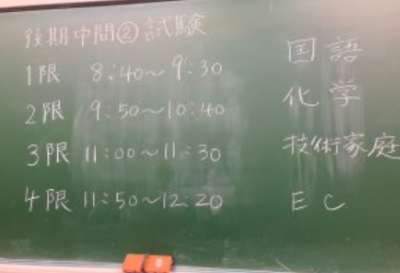 後期中間②試験
1限 8:40～9:30 国語
2限 9:50～10:40 化学
3限 11:00～11:30 技術家庭
4限 11:50～12:20 EC